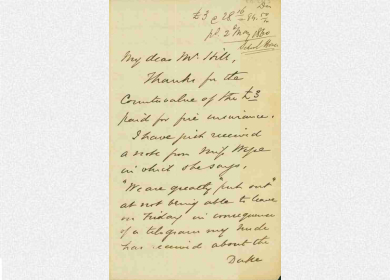 £3 @ 28
2 May
My dear Mr. Hill,
Thanks for the
Countervalue of the £3
paid for fire insurance.
I have just received
a note from Miss
in which she says,
"We are greatly "put out"
at not being able to leave
on Friday in consequence
of a telegram my Uncle
has received about the
Duke